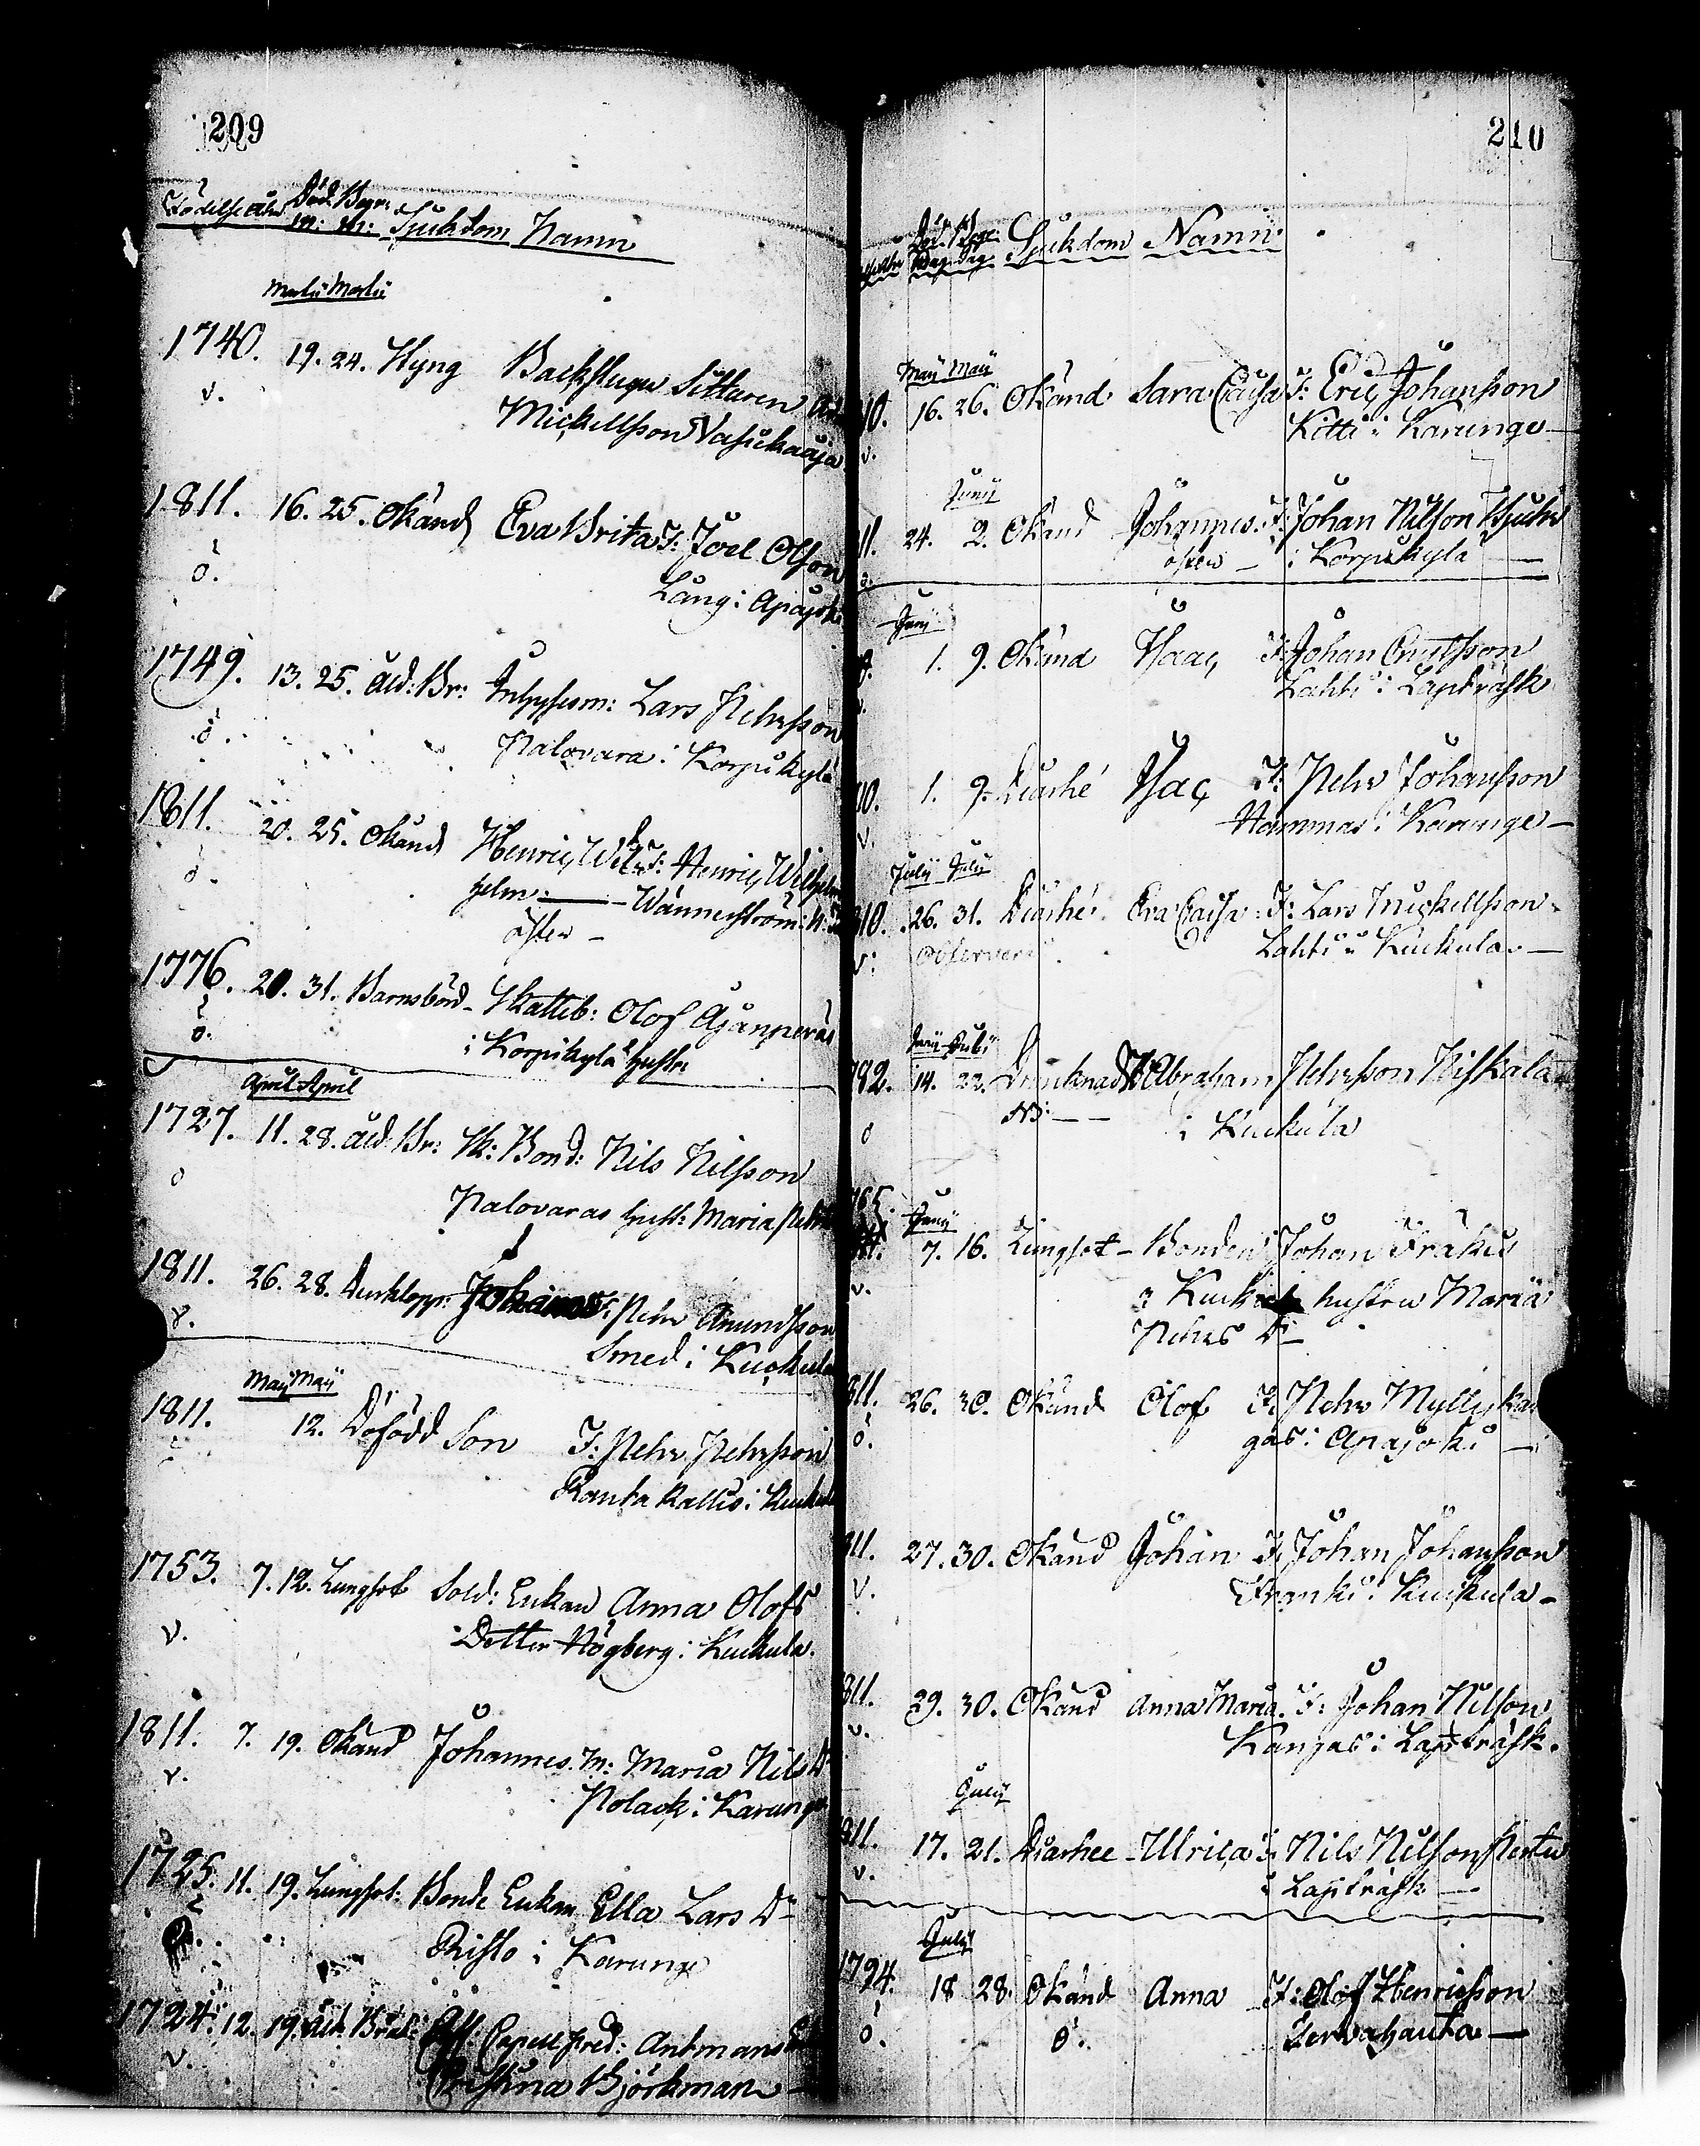 209
Födelse åhr Död. Begr:
m: m: Sjukdom Namn
Martii Martii
1740. 19. 24. Styng Backstugu Sittaren
v. Mickellsson Vasickaaja
1811. 16. 25. Okänd Eva Brita F: Joel Olsson
ö. Lång i Apajoki
1749. 13. 25. åld: Br: Inhysesm: Lars Pehrsson
ö. Palovara i Korpikylä
1811. 20. 25. Okänd Henric Wil F: Henric Wilhelm
ö. helm — Wännerström
öster
1776. 20. 31. Barnsbörd Skatteb: Olof Ajanperäs
ö. i Korpikylä hustru
April April
1727. 11. 28. åld: Br: Sk: Bond: Nils Nilsson
ö Palovaras hust: Maria
1811. 26. 28. Durklopp: Johannes F: Pehr Amundsson
v. Smed i Kuckula
Maij Maij
1811. 12. Döfödd Son F: Pehr Pehrsson
Ranta Kallis i Kuckula
1753. 7. 12. Lungsot Sold: Enkan Anna Olofs
v. Dotter Högberg i Kuckula.
1811. 7. 19. Okänd Johannes. M: Maria Nils D:
v. Polack i Karunge
1725. 11. 19. Lungsot: Bonde Enkan Ella Lars Dr
Risto i Karunge
1724. 12. 19. åld. Br: Capell pred: Antmans
v. Christina Björkman
210
Död. Begr: Sjukdom Namn
Dag. Dag
Maij Maij
10. 16. 26. Okänd Sara Caisa F: Eric Johansson
v. Kitti i Karunge —
Junij
11. 24. 2. Okänd Johannes. F: Johan Nilsson
ö. öster — i Korpikylä —
Junij
1. 9. Okänd Isaac F: Johan
Lahti i Lapträsk
10. 1. 9. Diarhé Isac F: Pehr Johansson
v. Hammas i Karunge —
Julij Julij
810. 26. 31. Diarhé. Eva Caisa F: Lars Mickellsson
v: Observera Lahti i Kuckula —
Junij Julij
792. 14. 22. Drunknad Abraham Pehrsson Niskala
ö NB: — — i Kuckula
765. Junij
7. 16. Lungsot — Bonden Johan Fräkis
v. i Kuckula hustru Maria
Pehrs Dr —
811. 26. 30. Okänd Olof F: Pehr Myllykan
ö. gas i Apajoki —
811. 27. 30. Okänd Johan F: Johan Johansson
v. Franki i Kuckula —
811. 29. 30. Okänd Anna Maria. F: Johan Nilsson
v. Kangas i Lapträsk.
Julij
811. 17. 21. Diarhee — Ulrica F: Nils Nilsson
v. i Lapträsk —
Julij
1794. 18 28. Okänd Anna F: Olof Henricsson
ö. ö. Tervahauta —